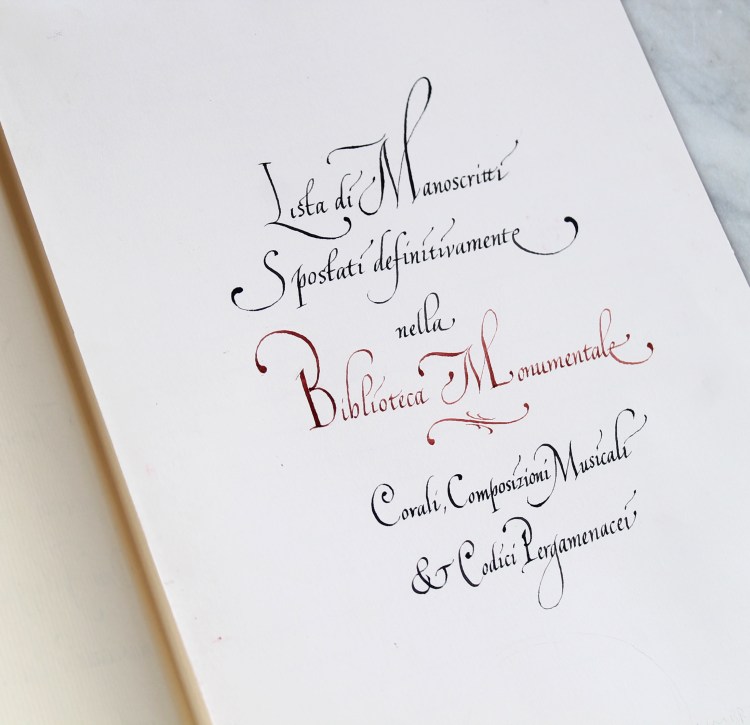 Lista di Manoscritti
Spostati definitivamente
nella
Biblioteca Monumentale
Corali, Composizioni Musicali
& Codici Pergamenacei